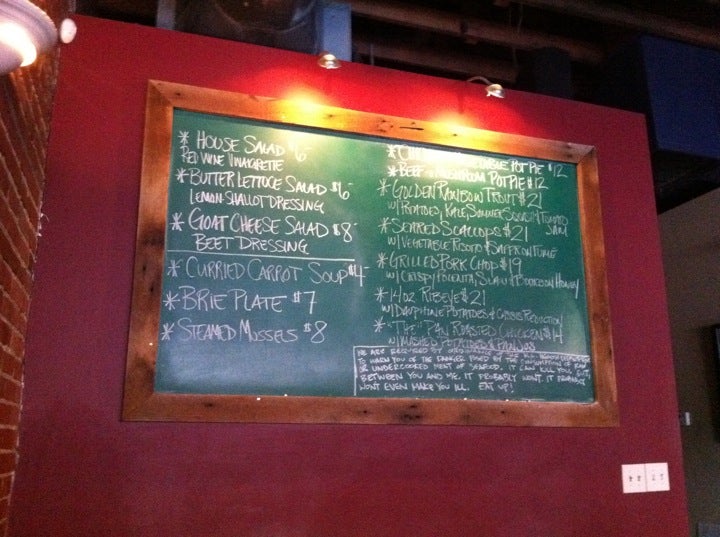 * HOUSE SALAD $6-
RED WINE VINAIGRETTE
* BUTTER LETTUCE SALAD $6-
LEMON-SHALLOT DRESSING
* GOAT CHEESE SALAD $8-
BEET DRESSING
* CURRIED CARROT SOUP $4-
* BRIE PLATE $7
* STEAMED MUSSELS $8
POT PIE $12
* BEEF & MUSHROOM POT PIE $12
* GOLDEN RAINBOW TROUT $21
W/ POTATOES, KALE, SUMMER SQUASH & TOMATO
* SEARED SCALLOPS $21
W/ VEGETABLE RISOTTO & SAFFRON FUMÉ
* GRILLED PORK CHOP $19
W/ CRISPY POLENTA, SLAW & BOURBON HONEY
* 14OZ RIBEYE $21
W/ DAUPHINE POTATOES & REDUCTION
* "THE" PAN ROASTED CHICKEN $14
W/ MASHED POTATOES &
WE ARE REQUIRED BY THE
TO WARN YOU OF THE DANGER POSED BY THE CONSUMPTION OF RAW
OR UNDERCOOKED MEAT OR SEAFOOD. IT CAN KILL YOU, BUT
BETWEEN YOU AND ME, IT PROBABLY WON'T. IT PROBABLY
WON'T EVEN MAKE YOU ILL. EAT UP!